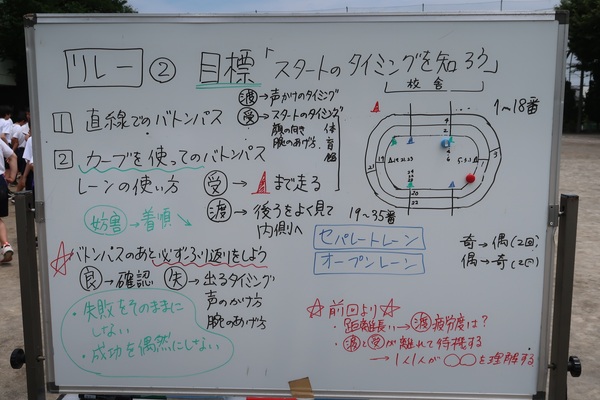 リレー ② 目標「スタートのタイミングを知ろう」
㊤渡→声がけのタイミング
受→スタートのタイミング
顔の向き
腕のあげ方
体育館
校舎
1〜18番
1 直線でのバトンパス
2 カーブを使ってのバトンパス
レーンの使い方
受→まで走る
渡→後ろをよく見て
内側へ
妨害→着順↘
19〜35番
セパレートレーン
オープンレーン
奇→偶(2回)
偶→奇(2回)
☆バトンパスのあと必ずふり返りをしよう
良→確認
失→出るタイミング
声のかけ方
腕のあげ方
・失敗をそのままに
しない
・成功を偶然にしない
☆前回より☆
・距離長い→渡疲労度は?
・渡と受が離れて待機する
→1人1人が○○を理解する